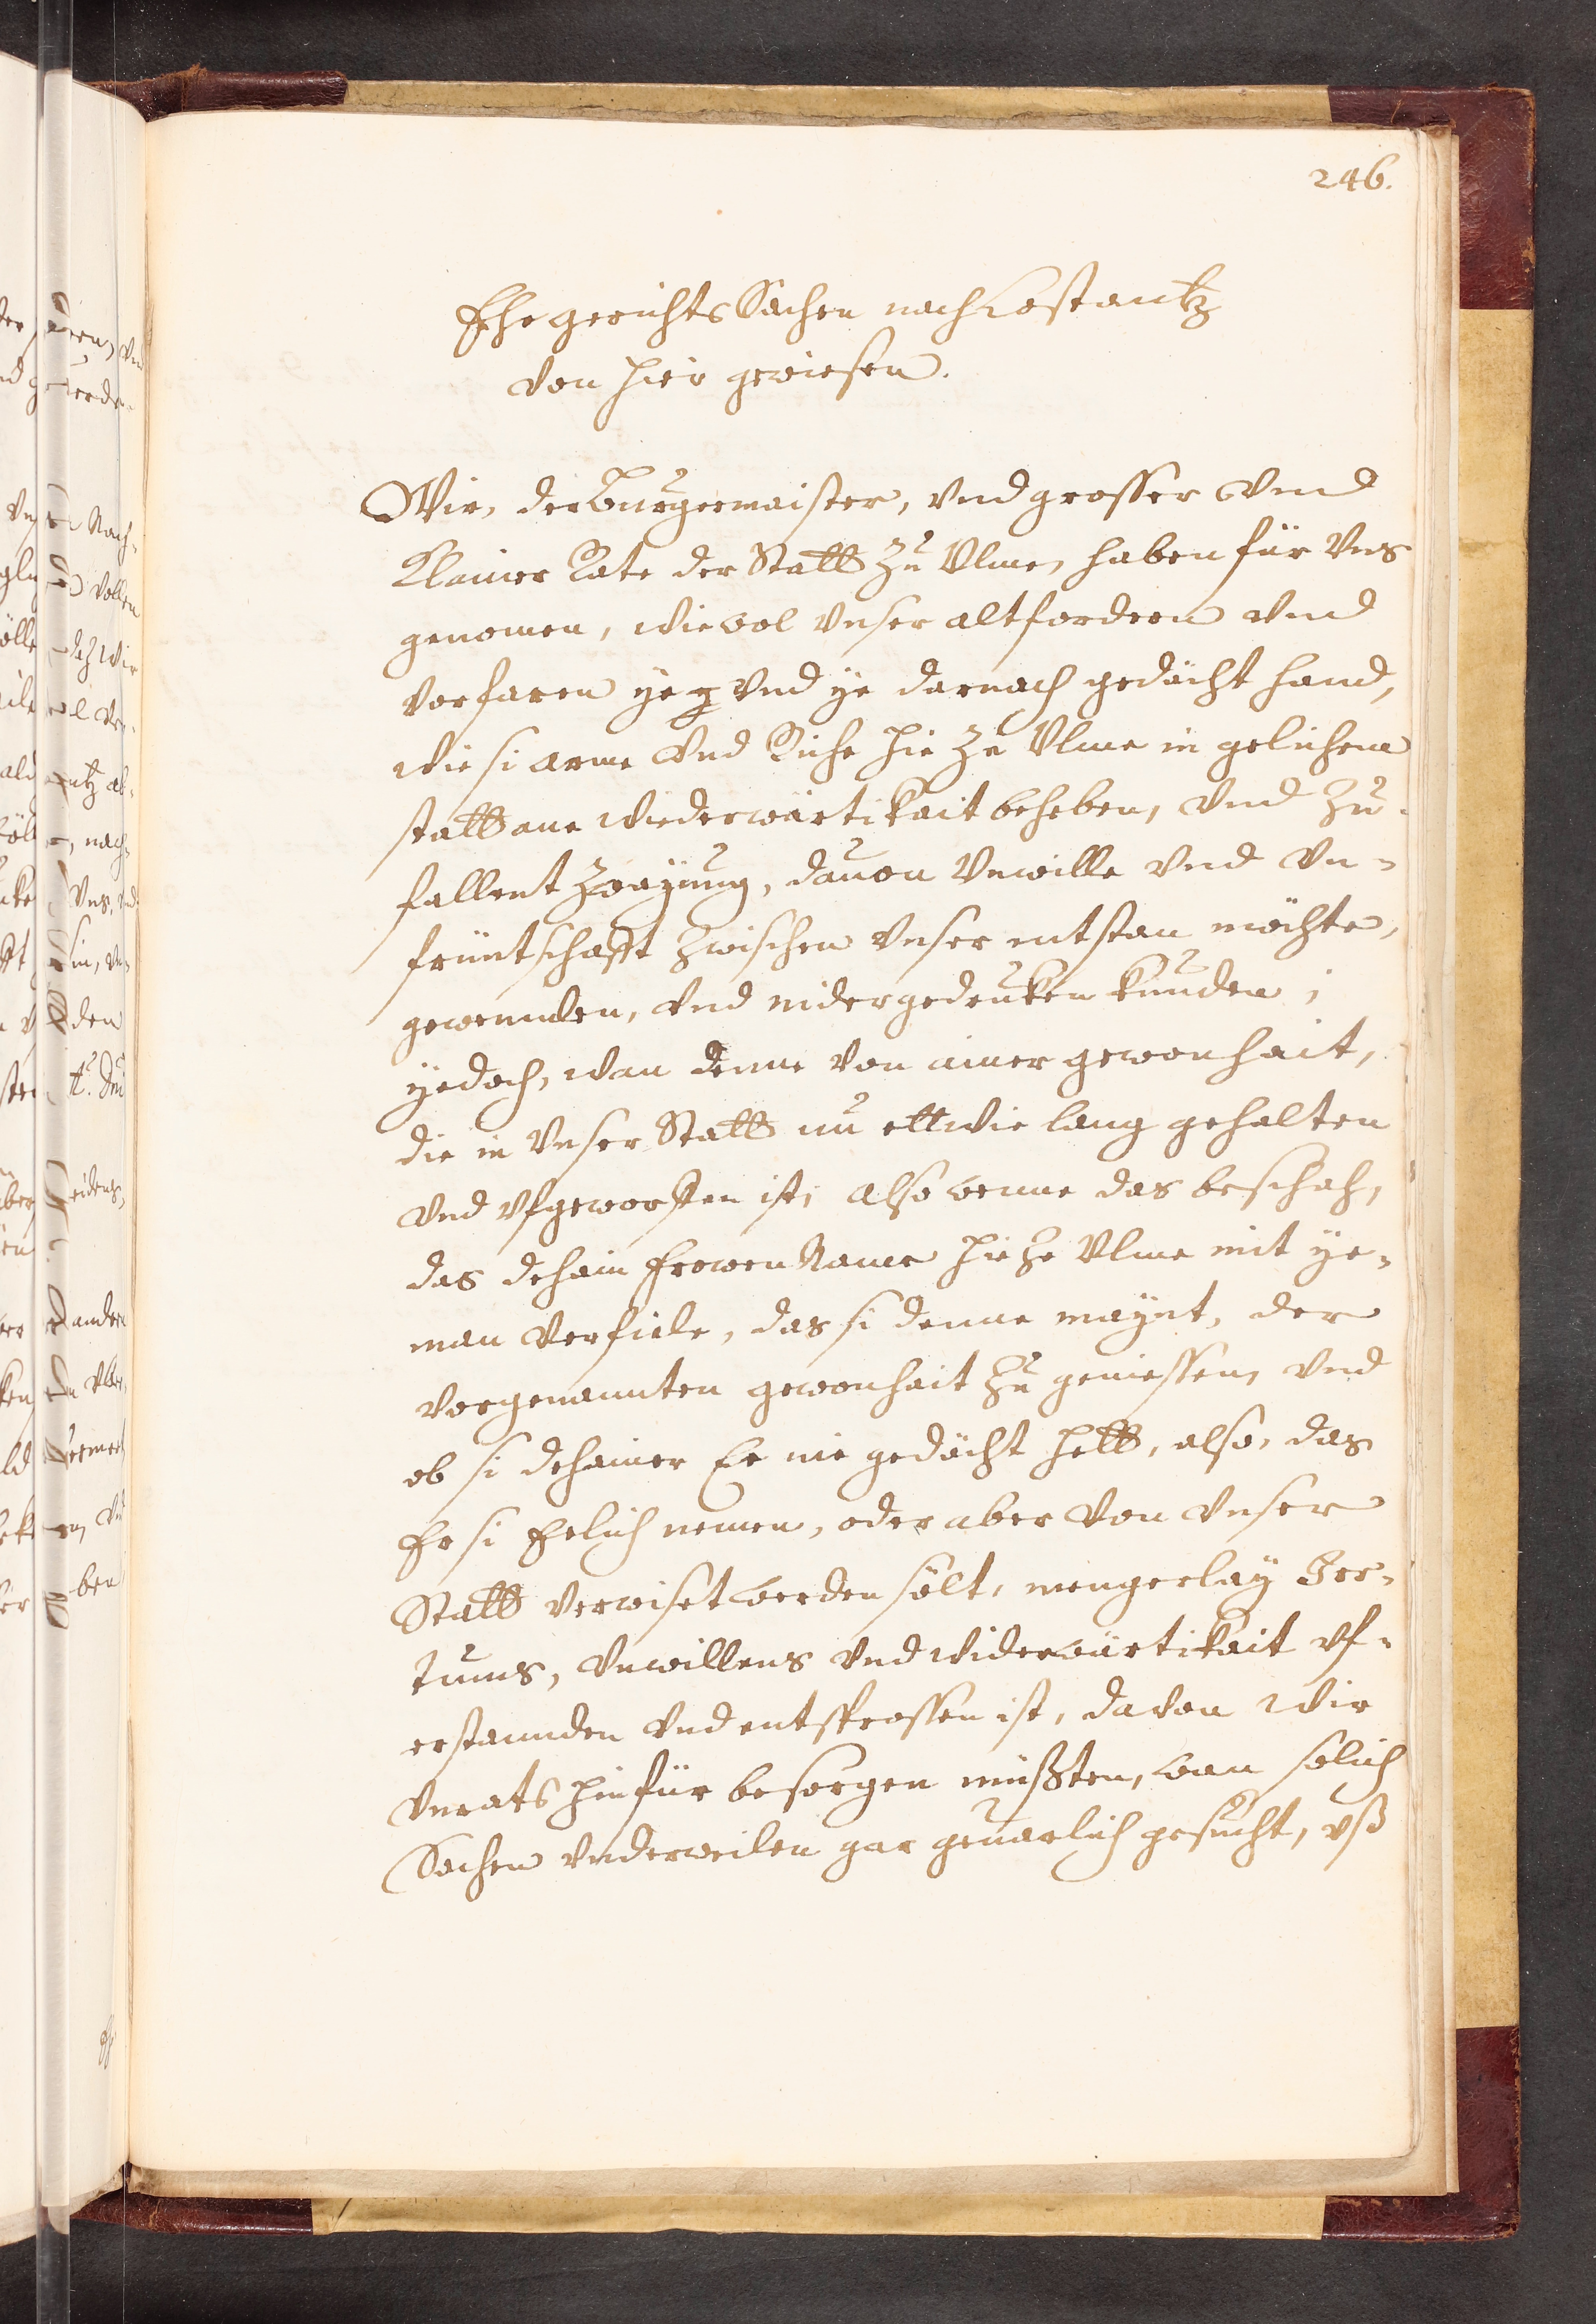 246.
Ehegerichts Sachen nach Costantz
von hier gewiesen.
Wir, der Burgermaister, vnd grosser vnd
Klainer Rate der Statt zu Vlme, haben für Vns
genomen, wie wol vnser altfordern vnd
vorfaren ye vnd ye darnach gedächt hand,
wie si arme vnd Riche hie ze Vlme in gelichem
statt ane wiederwärtikait beheben, vnd zu-
fallent zwayung, dauon Vnwille vnd vn-
früntschafft zwischen vnser entstan möchte,
gewennden, vnd nidergedruken kunden;
yedoch, wan denne von ainer gewonhait,
die in vnser Statt nu ettwie lang gehalten
vnd vfgeworffen ist, also wenne das beschah,
das dehain frowen Name hie ze Vlme mit ye-
man verfiele, das si denne maynt, der
vorgenannten gewonhait zu geniessen, vnd
ob si dehainer Ee nie gedächt hett, also, das
Er si Ehelich nemen, oder aber von vnser
Statt verwiset werden sölt, mengerlay Ier-
tums, vnwillens vnd widerwärtikait vf-
erstannden vnd entsprossen ist, davon wir
vnrats hinfür besorgen müßten, wan solich
Sachen vnderweilen gar geuarlich gesucht, vß